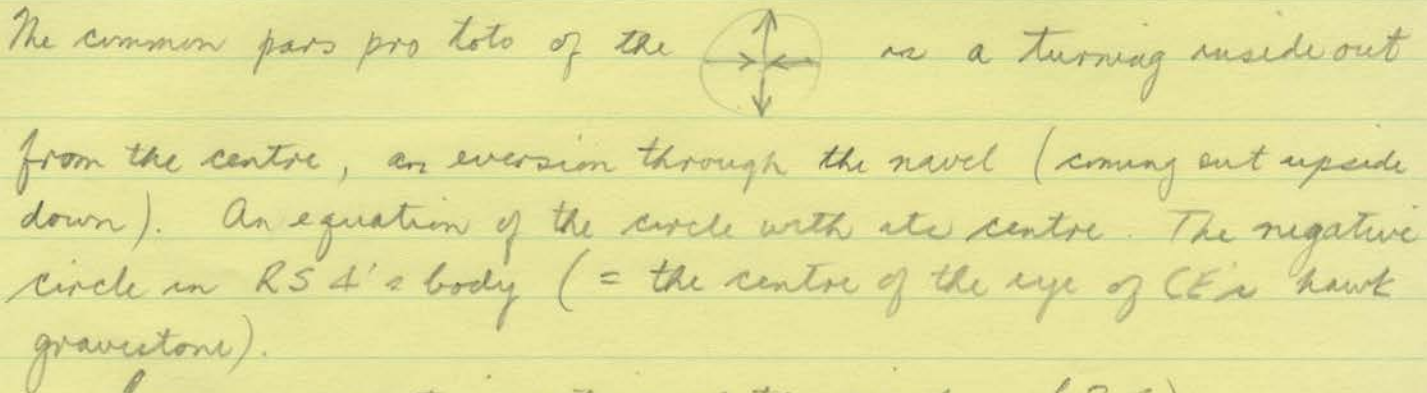 The common pars pro toto of the is a turning inside out
from the centre, an eversion through the navel (coming out upside
down). An equation of the circle with its centre. The negative
circle in RS 4's body (= the centre of the eye of CE's hawk
gravestone).